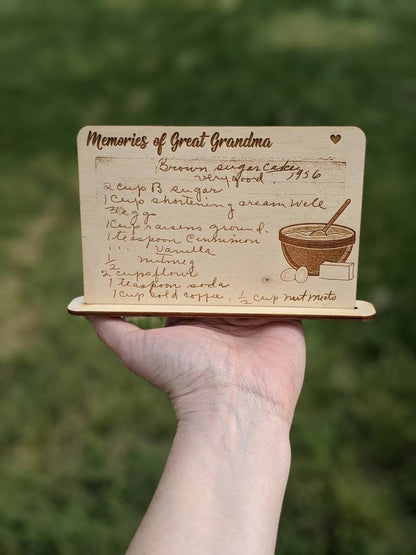 Memories of Great Grandma
Brown sugar cake
very good. 1956
2 cup B sugar
1 cup shortening cream well
3 egg
1 cup raisins ground.
1 teaspoon Cennimon
" Vanilla
1/2 nutmeg
2 cups flour
1 teaspoon soda
1 cup cold coffee, 1/2 cup nut meets